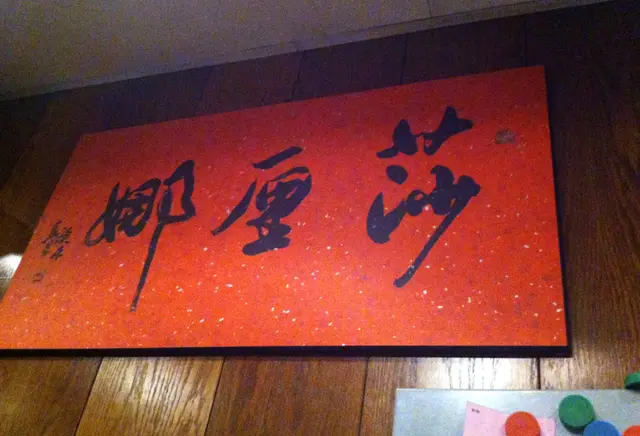 莎厘娜